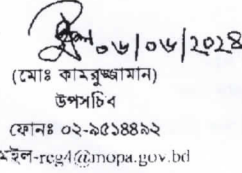 ০৬/০৬/২০২৪
(মোঃ কামরুজ্জামান)
উপসচিব
ফোনঃ ০২-৯৫১৪৪৯২
মইল-reg4@mopa.gov.bd